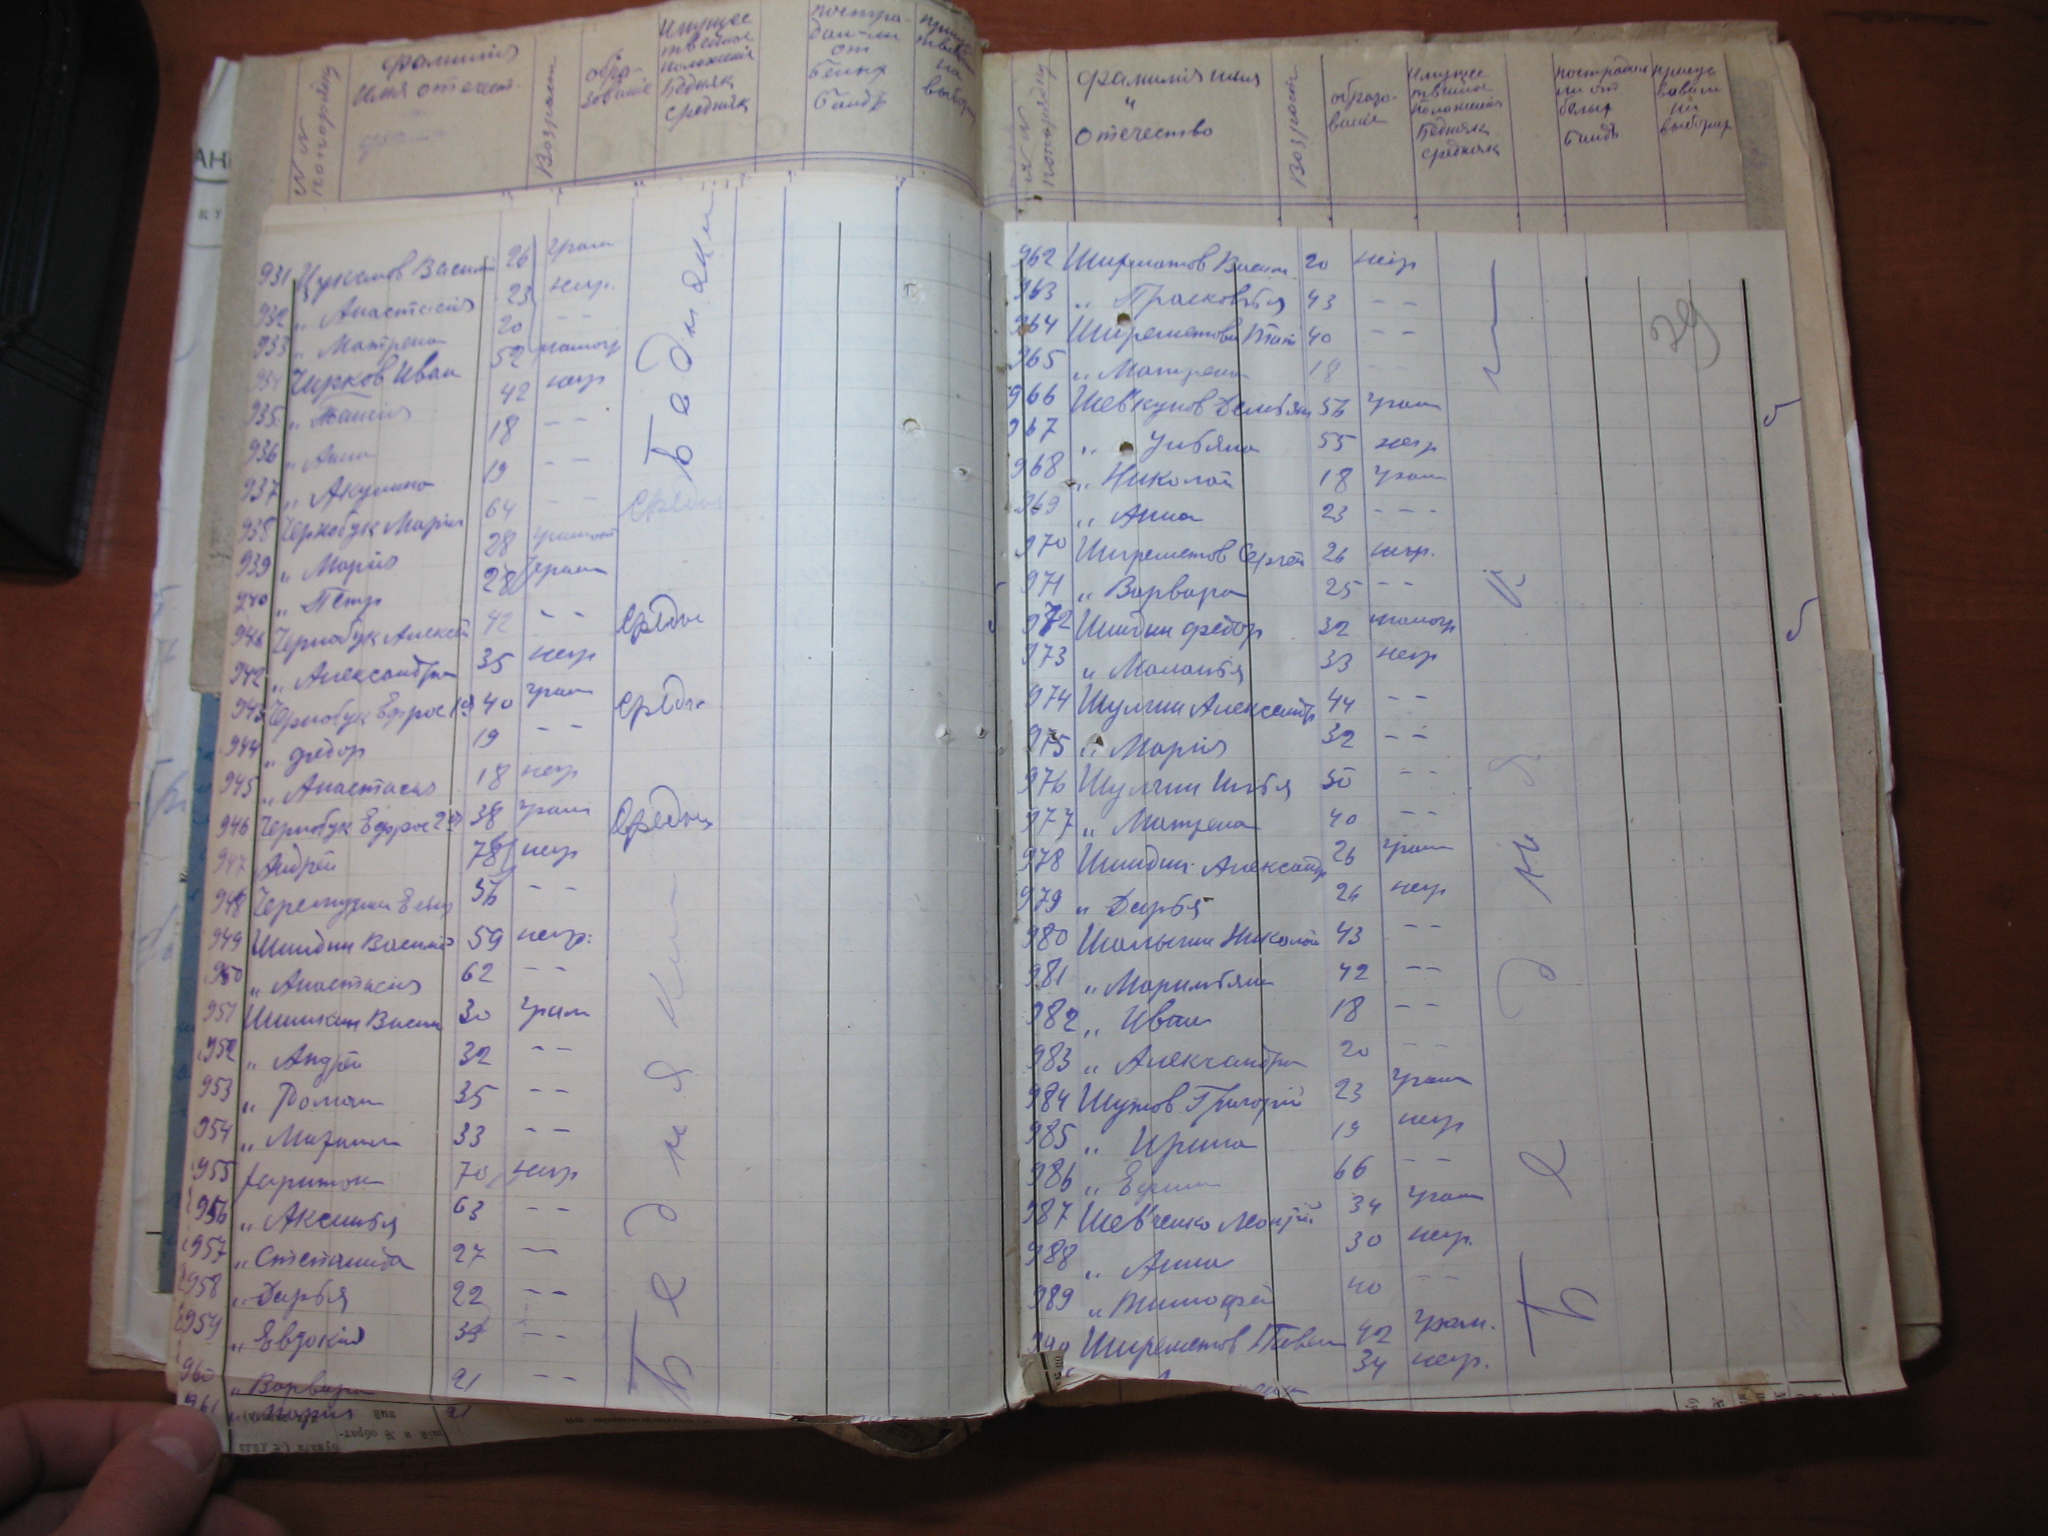 N N по порядку | фамилия имя отечест. | Возраст | обра-зование | Имущественное положения бедняк средняк | постра-дал-ли от белых банд | на выборах
931 Цуканов Васили 26 грам
932 „ Анастасия 23 негр.
933 „ Матрена 20 - -
934 Чирков Иван 52 малогр
935 „ 42 негр
936 „ Анна 18 - -
937 „ Акулина 19 - -
938 Чернобук Мария 64 - - средн
939 „ Мария 28
940 „ Петр 28 грам
941 Чернобук Алексей 42 - - средн
942 „ Александра 35 негр
943 Чернобук Ефрос 1й 40 грам средн
944 „ Федор 19 - -
945 „ Анастасия 18 негр
946 Чернобук Ефрос 2й 38 грам средн
947 Андрей 78 негр
948 56 - -
949 Шиндин Василий 59 негр.
950 „ Анастасия 62 - -
951 Шишкин Васили 30 грам
952 „ Андрей 32 - -
953 „ Роман 35 - -
954 „ 33 - -
955 Харитон 70 негр
956 „ Аксинья 63 - -
957 „ Степанида 27 - -
958 „ Дарья 22 - -
959 „ Евдокия - -
960 „ Варвара 21 - -
961 „ Мария 21
Бедняки
Бедняки
N N по порядку | фамилия имя и отечество | Возраст | образо-вание | Имущественное положения бедняк средняк | пострадали от белых банд | присут вовали на выборах
29
962 Шереметов Васили 20 негр
963 „ Прасковья 43 - -
964 Шереметова Тат 40 - -
965 „ Матрена 18 - -
966 Шевкунов Демьян 56 грам
967 „ Ульяна 55 негр
968 „ Николай 18 грам
969 „ Анна 23 - - -
970 Шереметов Сергей 26 негр.
971 „ Варвара 25 - -
972 Шиндин Федор 32 малогр
973 „ Маланья 33 негр
974 Шулгин Александр 44 - -
975 „ Мария 32 - -
976 Шулгин Илья 50 - -
977 „ Матрена 40 - -
978 Шиндин Александр 26 грам
979 „ Дарья 26 негр
980 Шалыгин Николай 43 - -
981 „ Маримьяна 42 - -
982 „ Иван 18 - -
983 „ Александра 20 - -
984 Шумов Григорий 23 грам
985 „ Ирина 19 негр
986 „ 66 - -
987 Шевченко 34 грам
988 „ Анна 30 негр.
989 „ Тимофей 40 - -
990 Шереметов Павел 42 грам.
34 негр.
Бедняки